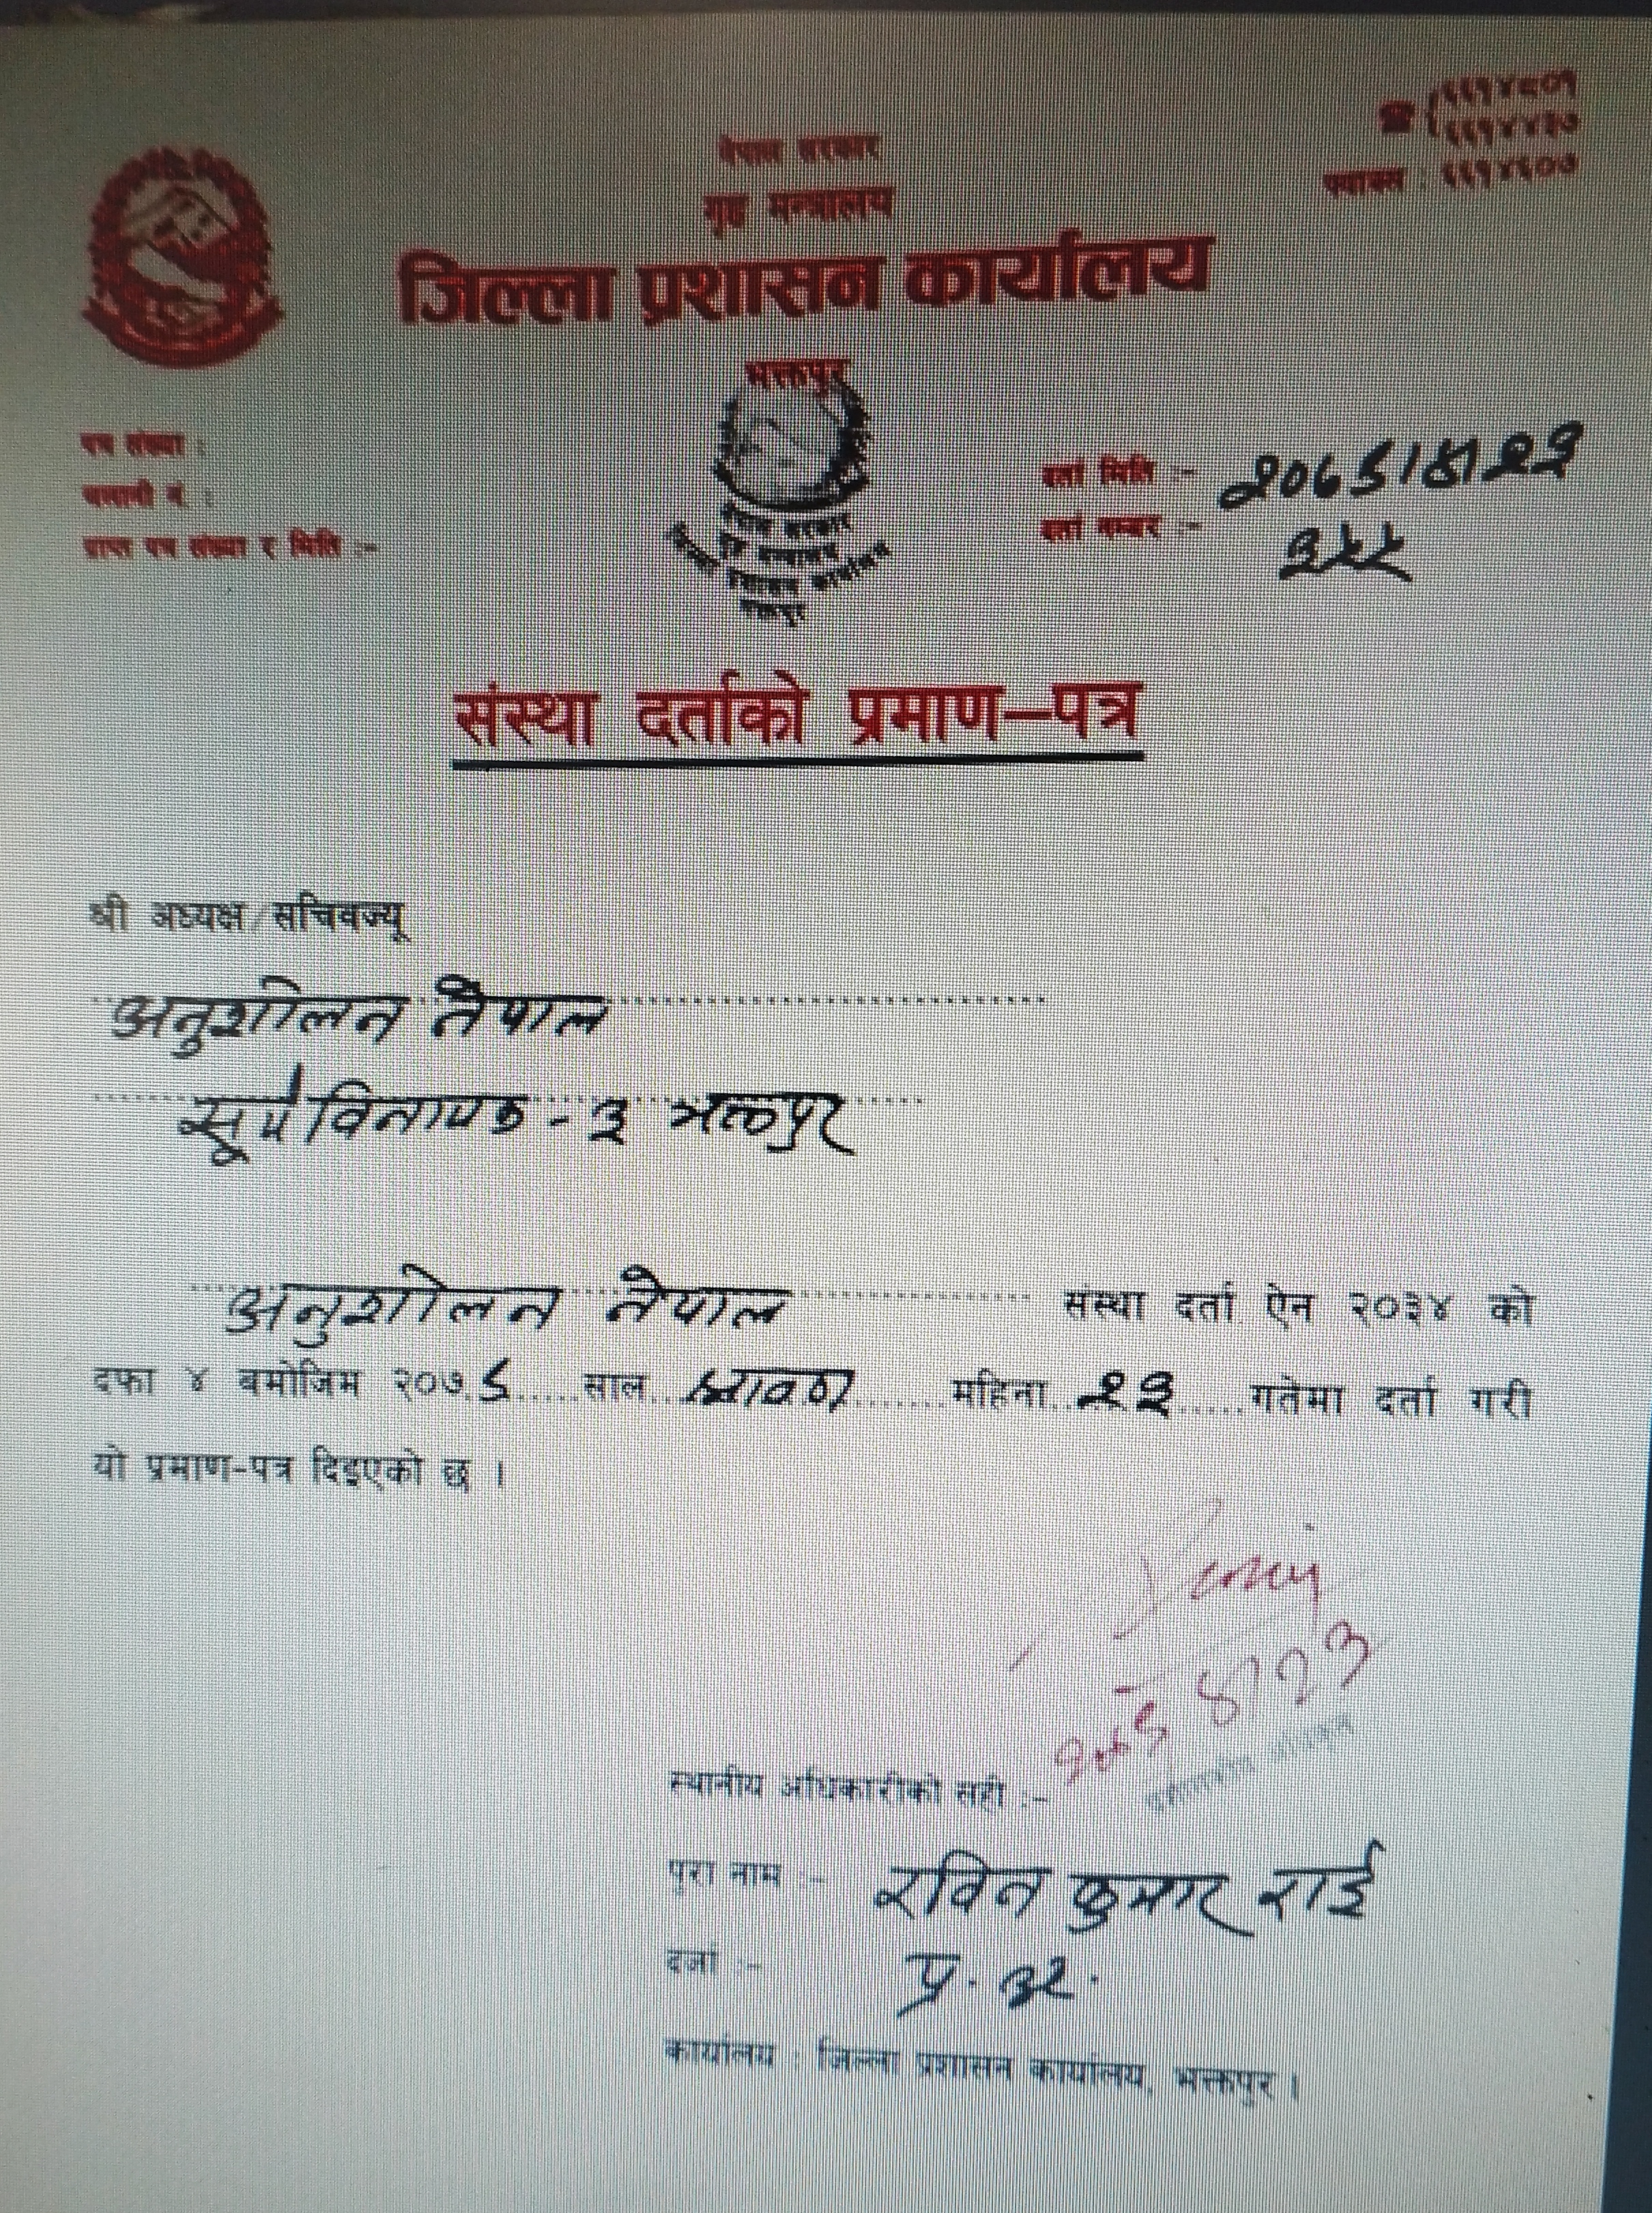 नेपाल सरकार
गृह मन्त्रालय
जिल्ला प्रशासन कार्यालय
भक्तपुर
☎ ६६१४८०१
६६१४४१०
फ्याक्स : ६६१४६००
पत्र संख्या :
चलानी नं. :
प्राप्त पत्र संख्या र मिति :-
नेपाल सरकार
गृह मन्त्रालय
जिल्ला प्रशासन कार्यालय
भक्तपुर
दर्ता मिति :- २०७६।४।२३
दर्ता नम्बर :- ३५५
संस्था दर्ताको प्रमाण–पत्र
श्री अध्यक्ष/सचिवज्यू
अनुशीलन नेपाल
सूर्यविनायक - ३ भक्तपुर
अनुशीलन नेपाल संस्था दर्ता ऐन २०३४ को
दफा ४ बमोजिम २०७६ साल श्रावण महिना २३ गतेमा दर्ता गरी
यो प्रमाण-पत्र दिइएको छ ।
२०७६।४।२३
स्थानीय अधिकारीको सही :-
पुरा नाम :- रविन कुमार राई
दर्जा :- प्र. अ.
कार्यालय : जिल्ला प्रशासन कार्यालय, भक्तपुर ।